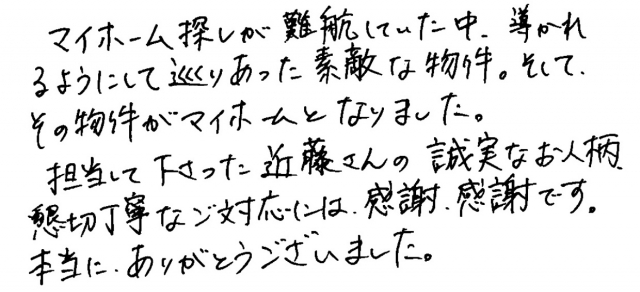 マイホーム探しが難航していた中、導かれ
るようにして巡りあった素敵な物件。そして、
その物件がマイホームとなりました。
担当して下さった近藤さんの誠実なお人柄、
懇切丁寧なご対応には、感謝、感謝です。
本当に、ありがとうございました。